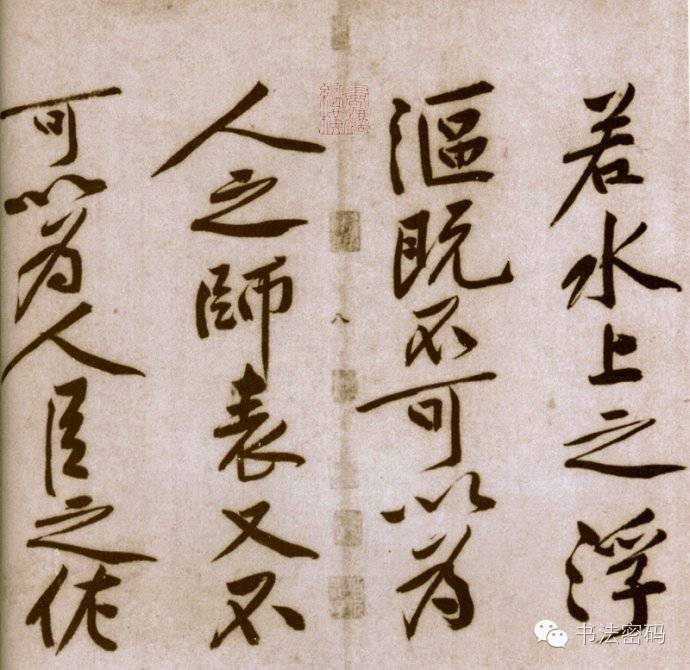 若水上之浮
漚既不可以為
人之師表又不
可以為人臣之佐
八
书法密码